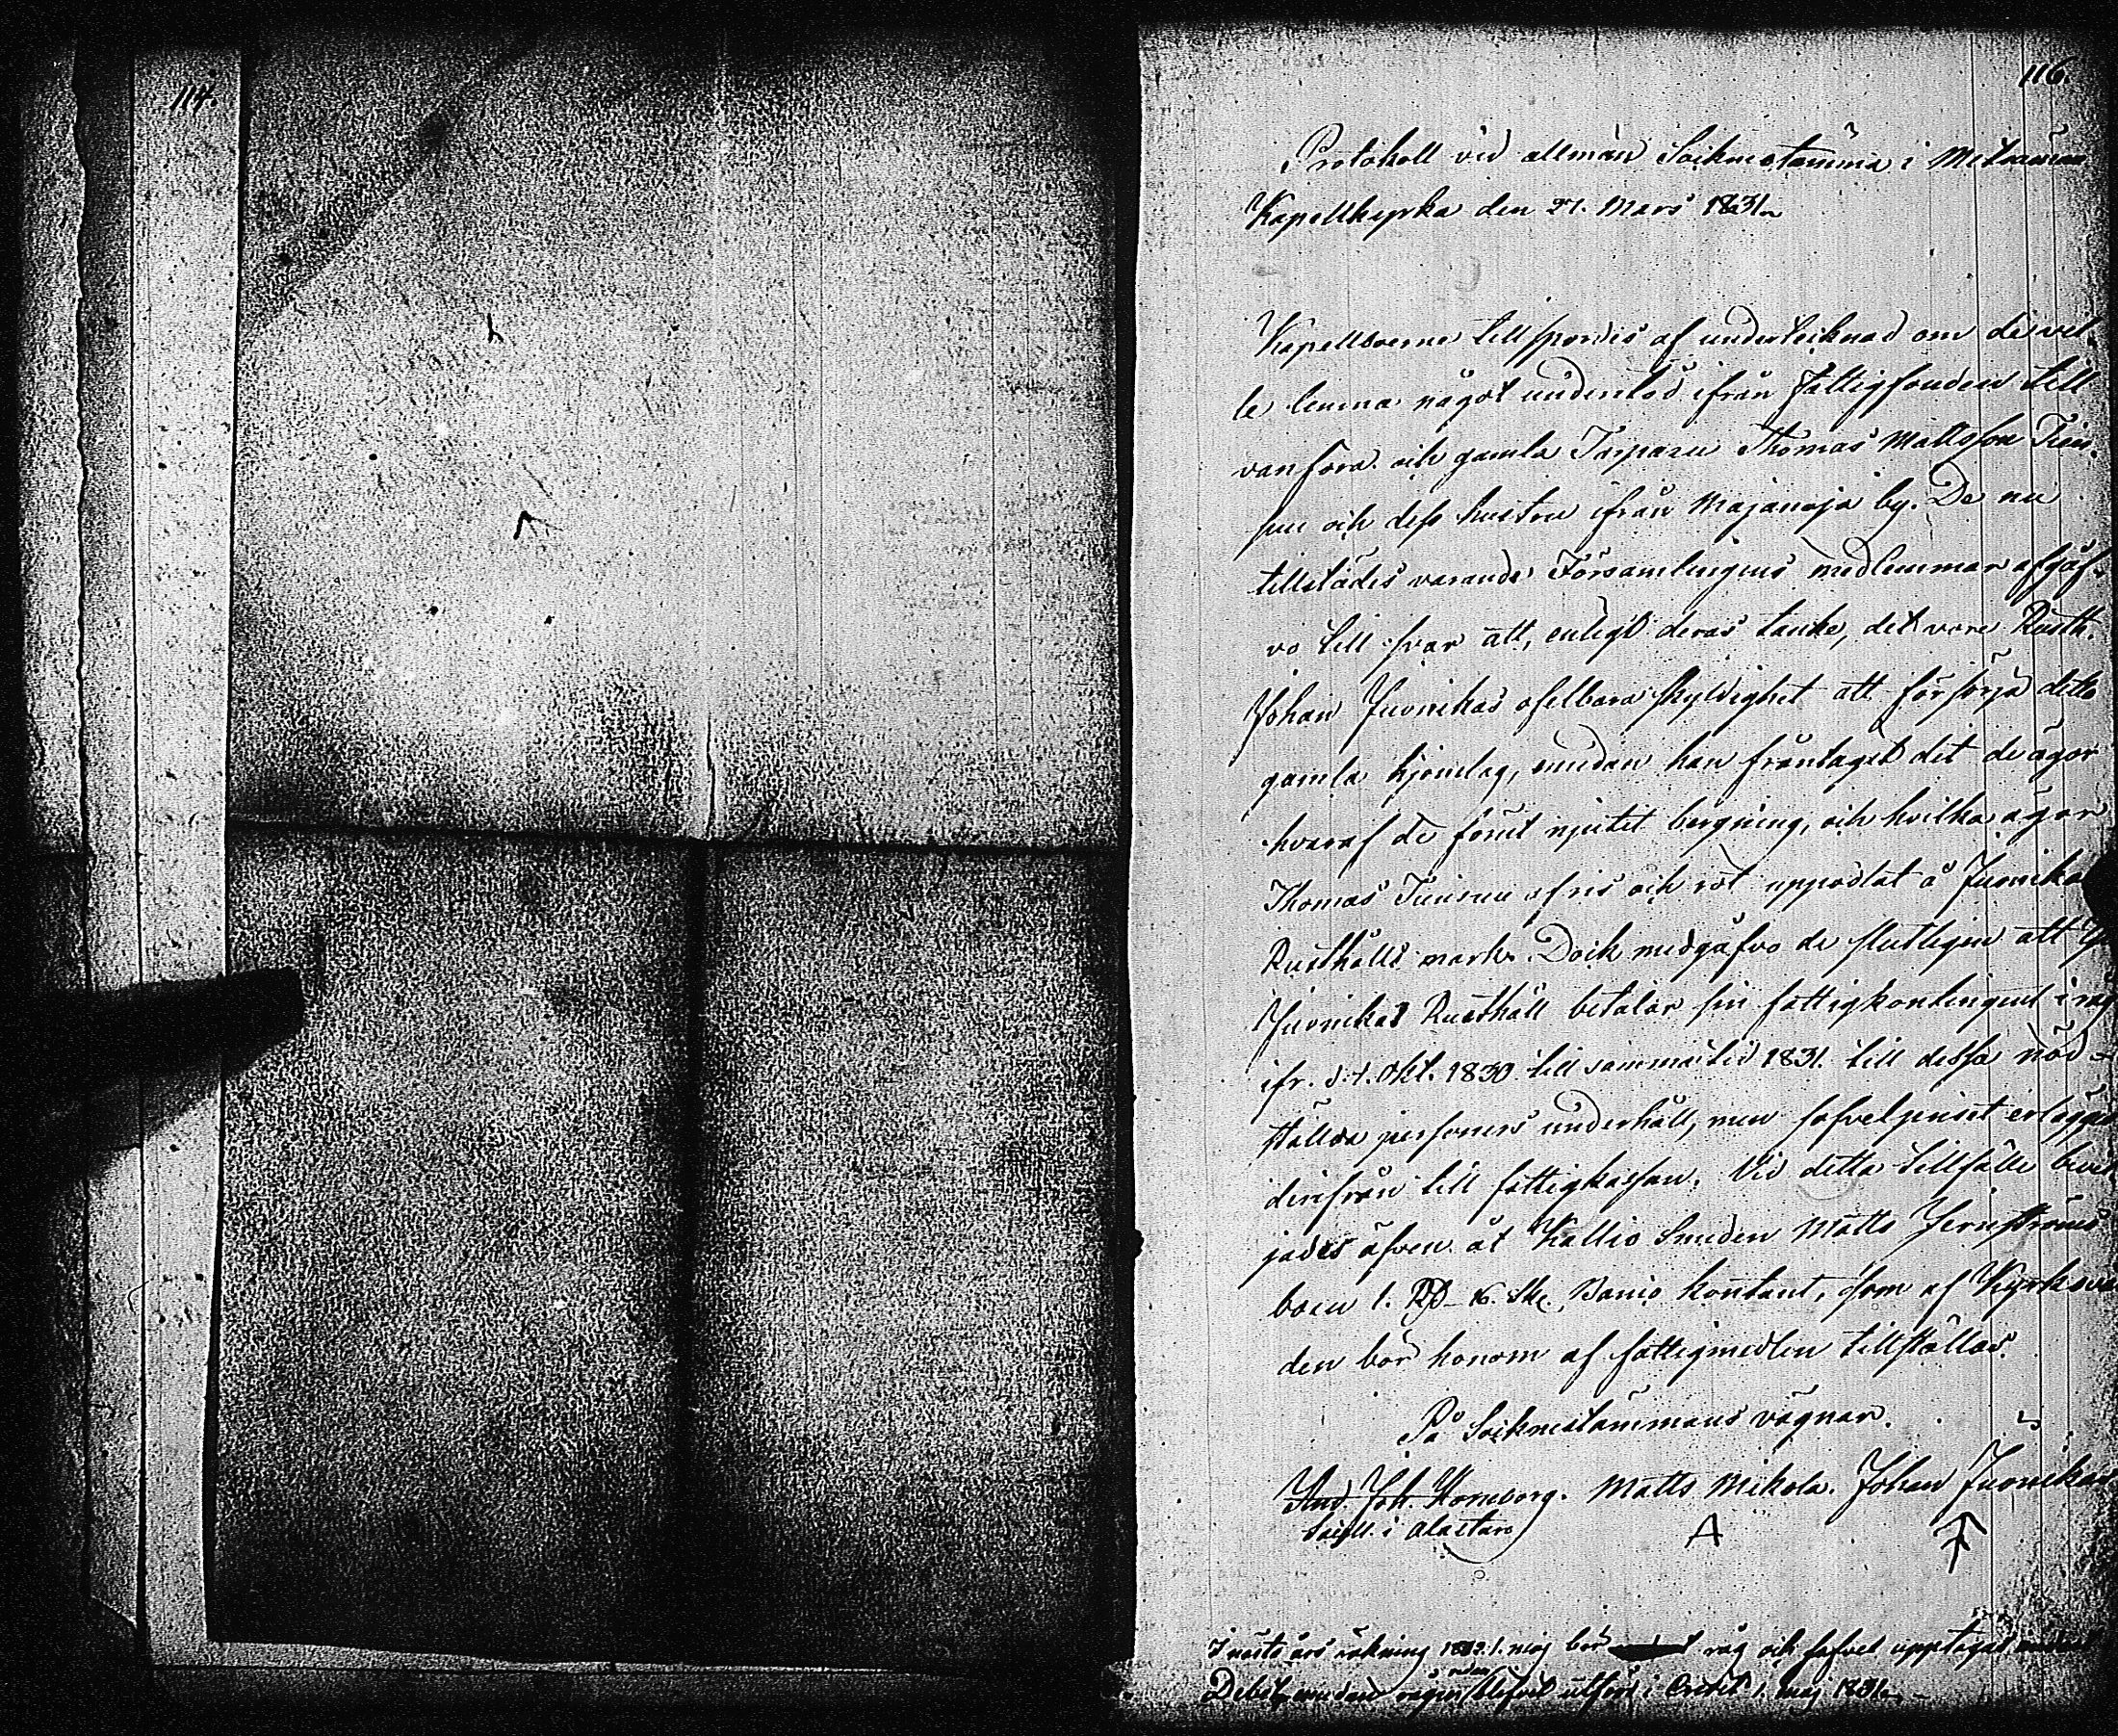 114.
116.
Protokoll vid allmän Socknestämma i Metsämaa
Kapellkyrka den 27. Mars 1831.
Kapellboerne tillspordes af undertecknad om de vel-
le lemna något understöd ifrån fattigfonden till
vanföra och gamla Torparen Thomas Mattsson
och dess hustru ifrån Majanoja by. De nu
tillstädes varande Församlingens medlemmar afgåf-
vo till svar att, enligt deras tanke, det vore Rusth.
Johan Juvnikas ofelbara skyldighet att försörja detta
gamla hjonelag, emedan han fråntagit det de ägor
hvaraf de förut njutit bergning, och hvilka ägor
Thomas af ris och rot uppodlat å Juvnikas
Rusthålls mark. Dock medgåfvo de slutligen att
Juvnikas Rusthåll betalar sin fattigkontingent i råg
ifr. d. 1. Okt. 1830 till samma tid 1831. till dessa nöd-
ställda personers underhåll, men sofvelpriset erlägges
derifrån till fattigkassan. Vid detta tillfälle bevil-
jades äfven åt Kallio Smeden Matts Jernströms
barn 1. Rd 16. sk. Banco kontant, som af Kyrkovär-
den bör honom af fattigmedlen tillställas.
På Socknestämmans vägnar.
And. Joh. Hornborg. Matts Mikola. Johan Juvnikas
Sacell. i Alastaro
I nästa års räkning 1832. 1. maj bör råg och sofvel upptagas
Debet, emedan utförd i Credit 1. maj 1831.